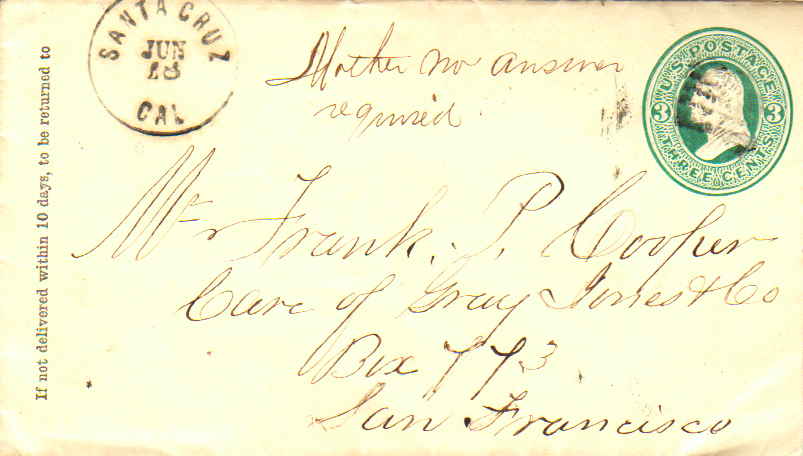 SANTA CRUZ
JUN
18
CAL
Mother no answer
required.
U.S. POSTAGE
3 3
THREE CENTS
Mr Frank. P. Cooper
Care of Gray Jones & Co
Box 773
San Francisco
If not delivered within 10 days, to be returned to